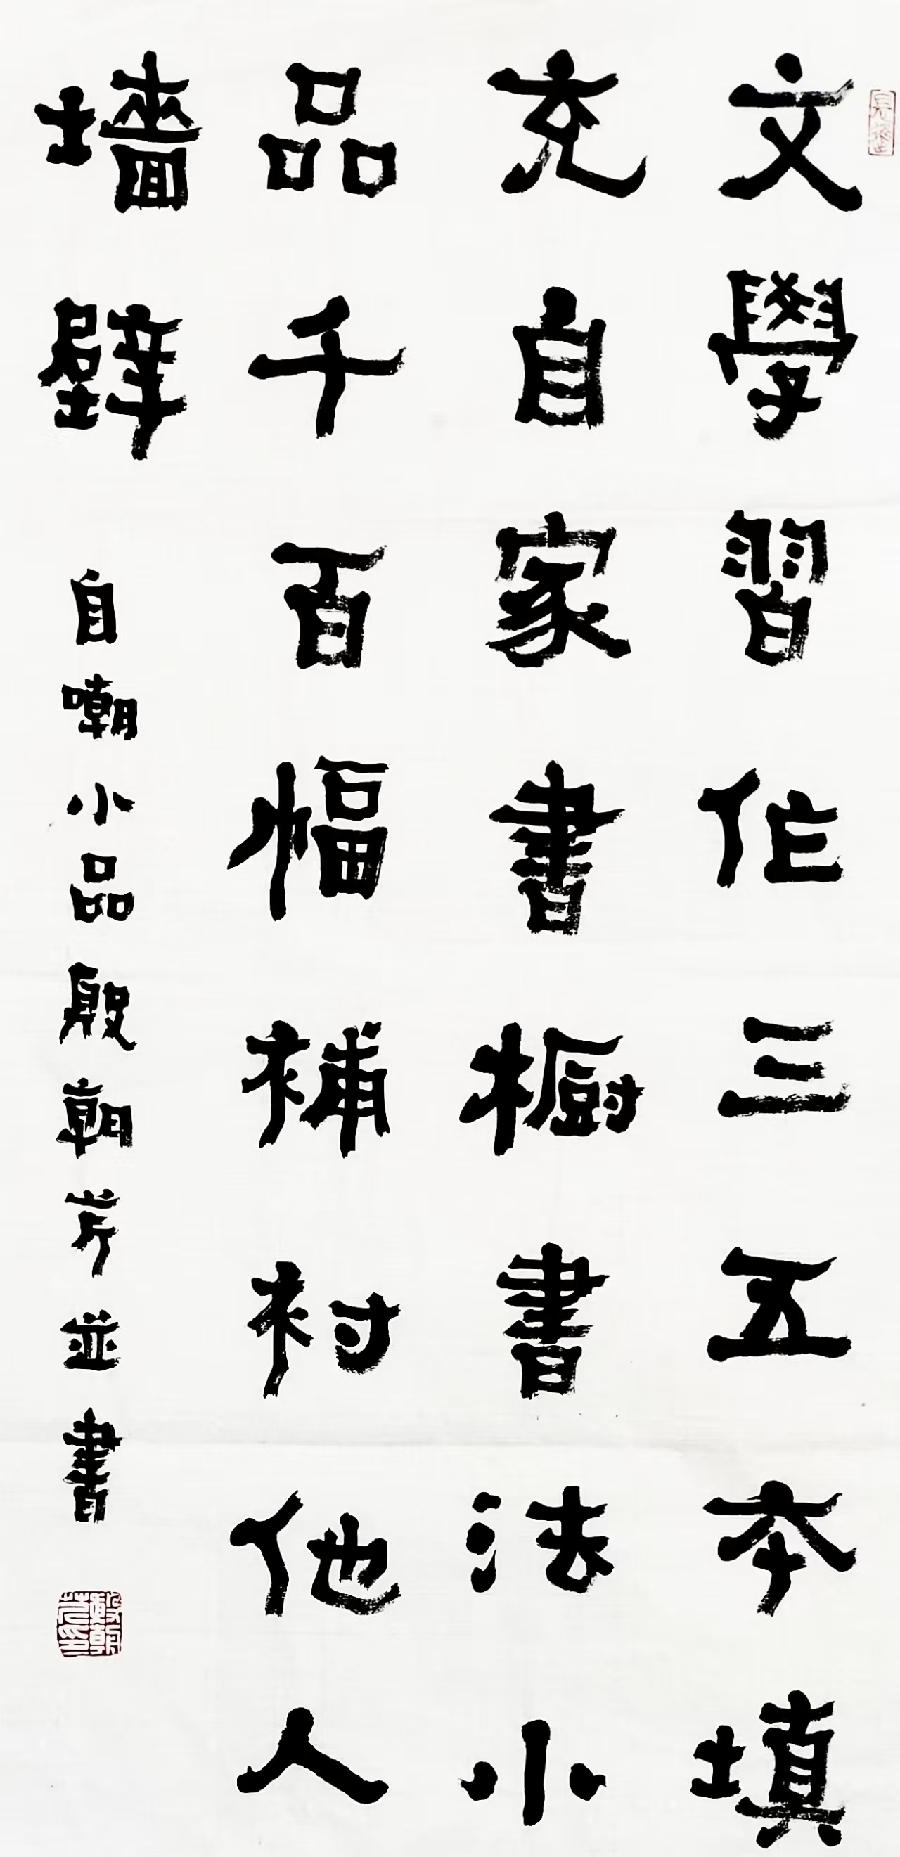 文學習作三五本填
充自家書櫥書法小
品千百幅補衬他人
墻壁
自嘲小品殷朝芹並書
殷朝芹印